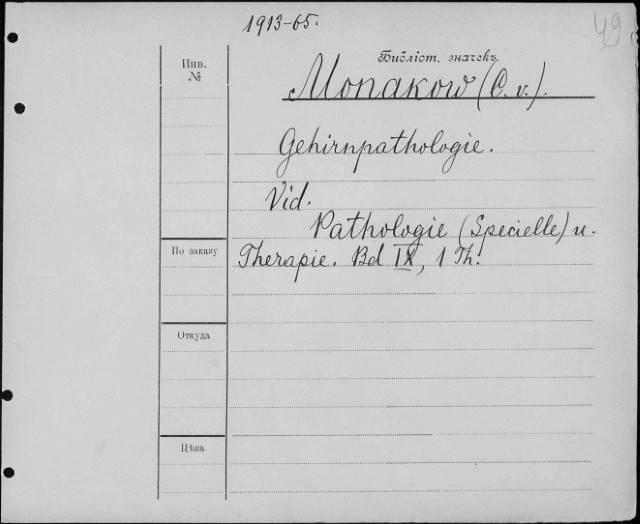 1913-65.
49
Библіот. значекъ
Инв.
№
Monakow (C. v.).
Gehirnpathologie.
Vid.
Pathologie (Specielle) u.
По заказу
Therapie. Bd IX, 1 Th.
Откуда
Цѣна